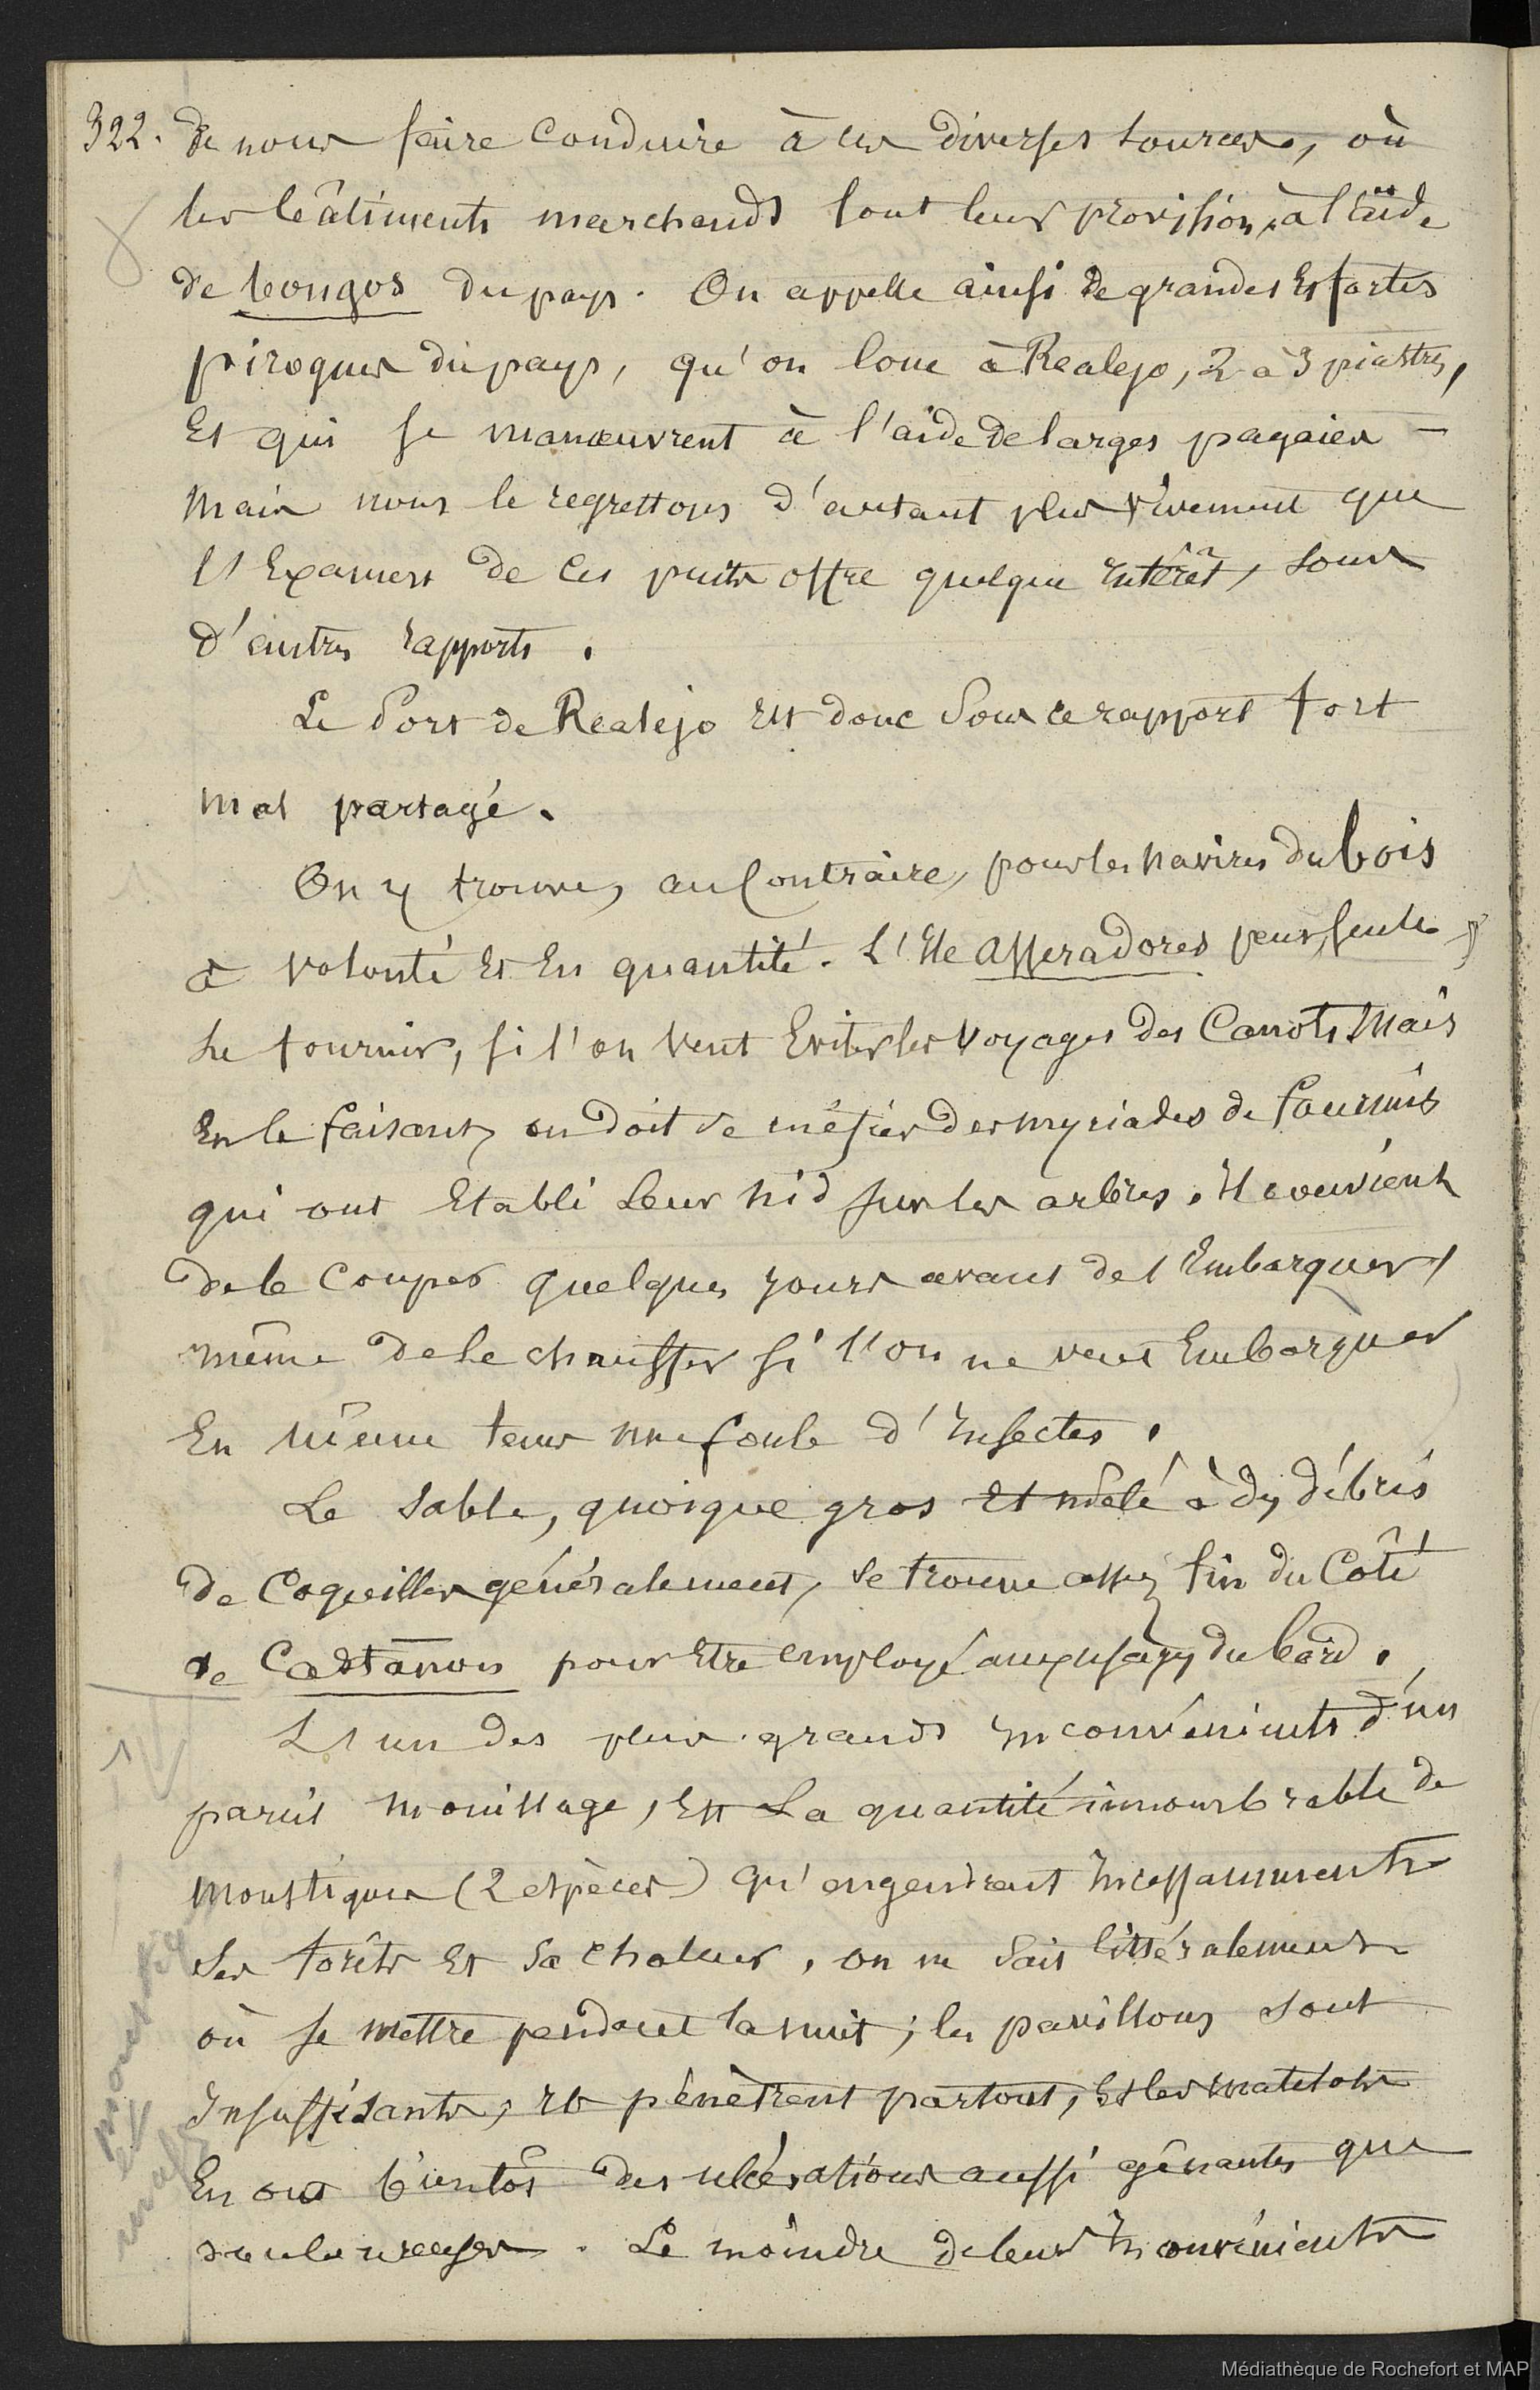 322. de nous faire conduire à ces diverses sources, où
les bâtiments marchands font leur provision, à l'aide
de bongos du pays. On appelle ainsi de grandes et fortes
pirogues du pays, qu'on loue à Realejo, 2 à 3 piastres,
et qui se manœuvrent à l'aide de larges pagaies -
mais nous le regrettons d'autant plus vivement que
l'examen de ces puits offre quelque intérêt, sous
d'autres rapports.
Le Port de Realejo est donc sous ce rapport fort
mal partagé.
On y trouve, au contraire, pour les navires du bois
à volonté et en quantité. L'île Asseradores peut, seule
le fournir, si l'on veut éviter les voyages des canots mais
en le faisant, on doit se méfier des myriades de fourmis
qui ont établi leur nid sur les arbres. Il convient
de le couper quelques jours avant de l'embarquer,
même de le chauffer si l'on ne veut embarquer
en même tems une foule d'insectes.
Le sable, quoique gros et mêlé à des débris
de coquilles généralement, se trouve assez fin du côté
de Castanon pour être employé aux usages du bord.
L'un des plus grands inconvénients d'un
pareil mouillage, est la quantité innombrable de
moustiques (2 espèces) qu'engendrent incessamment
ses forêts et sa chaleur. on ne sait littéralement
où se mettre pendant la nuit; les pavillons sont
insuffisants, ils pénètrent partout, et les matelots
en ont bientôt des ulcérations aussi gênantes que
douloureuses. Le moindre de leurs inconvénients
Médiathèque de Rochefort et MAP